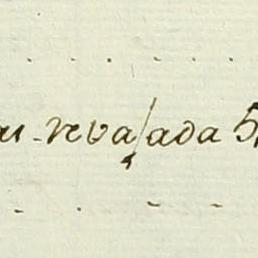 revajada 5